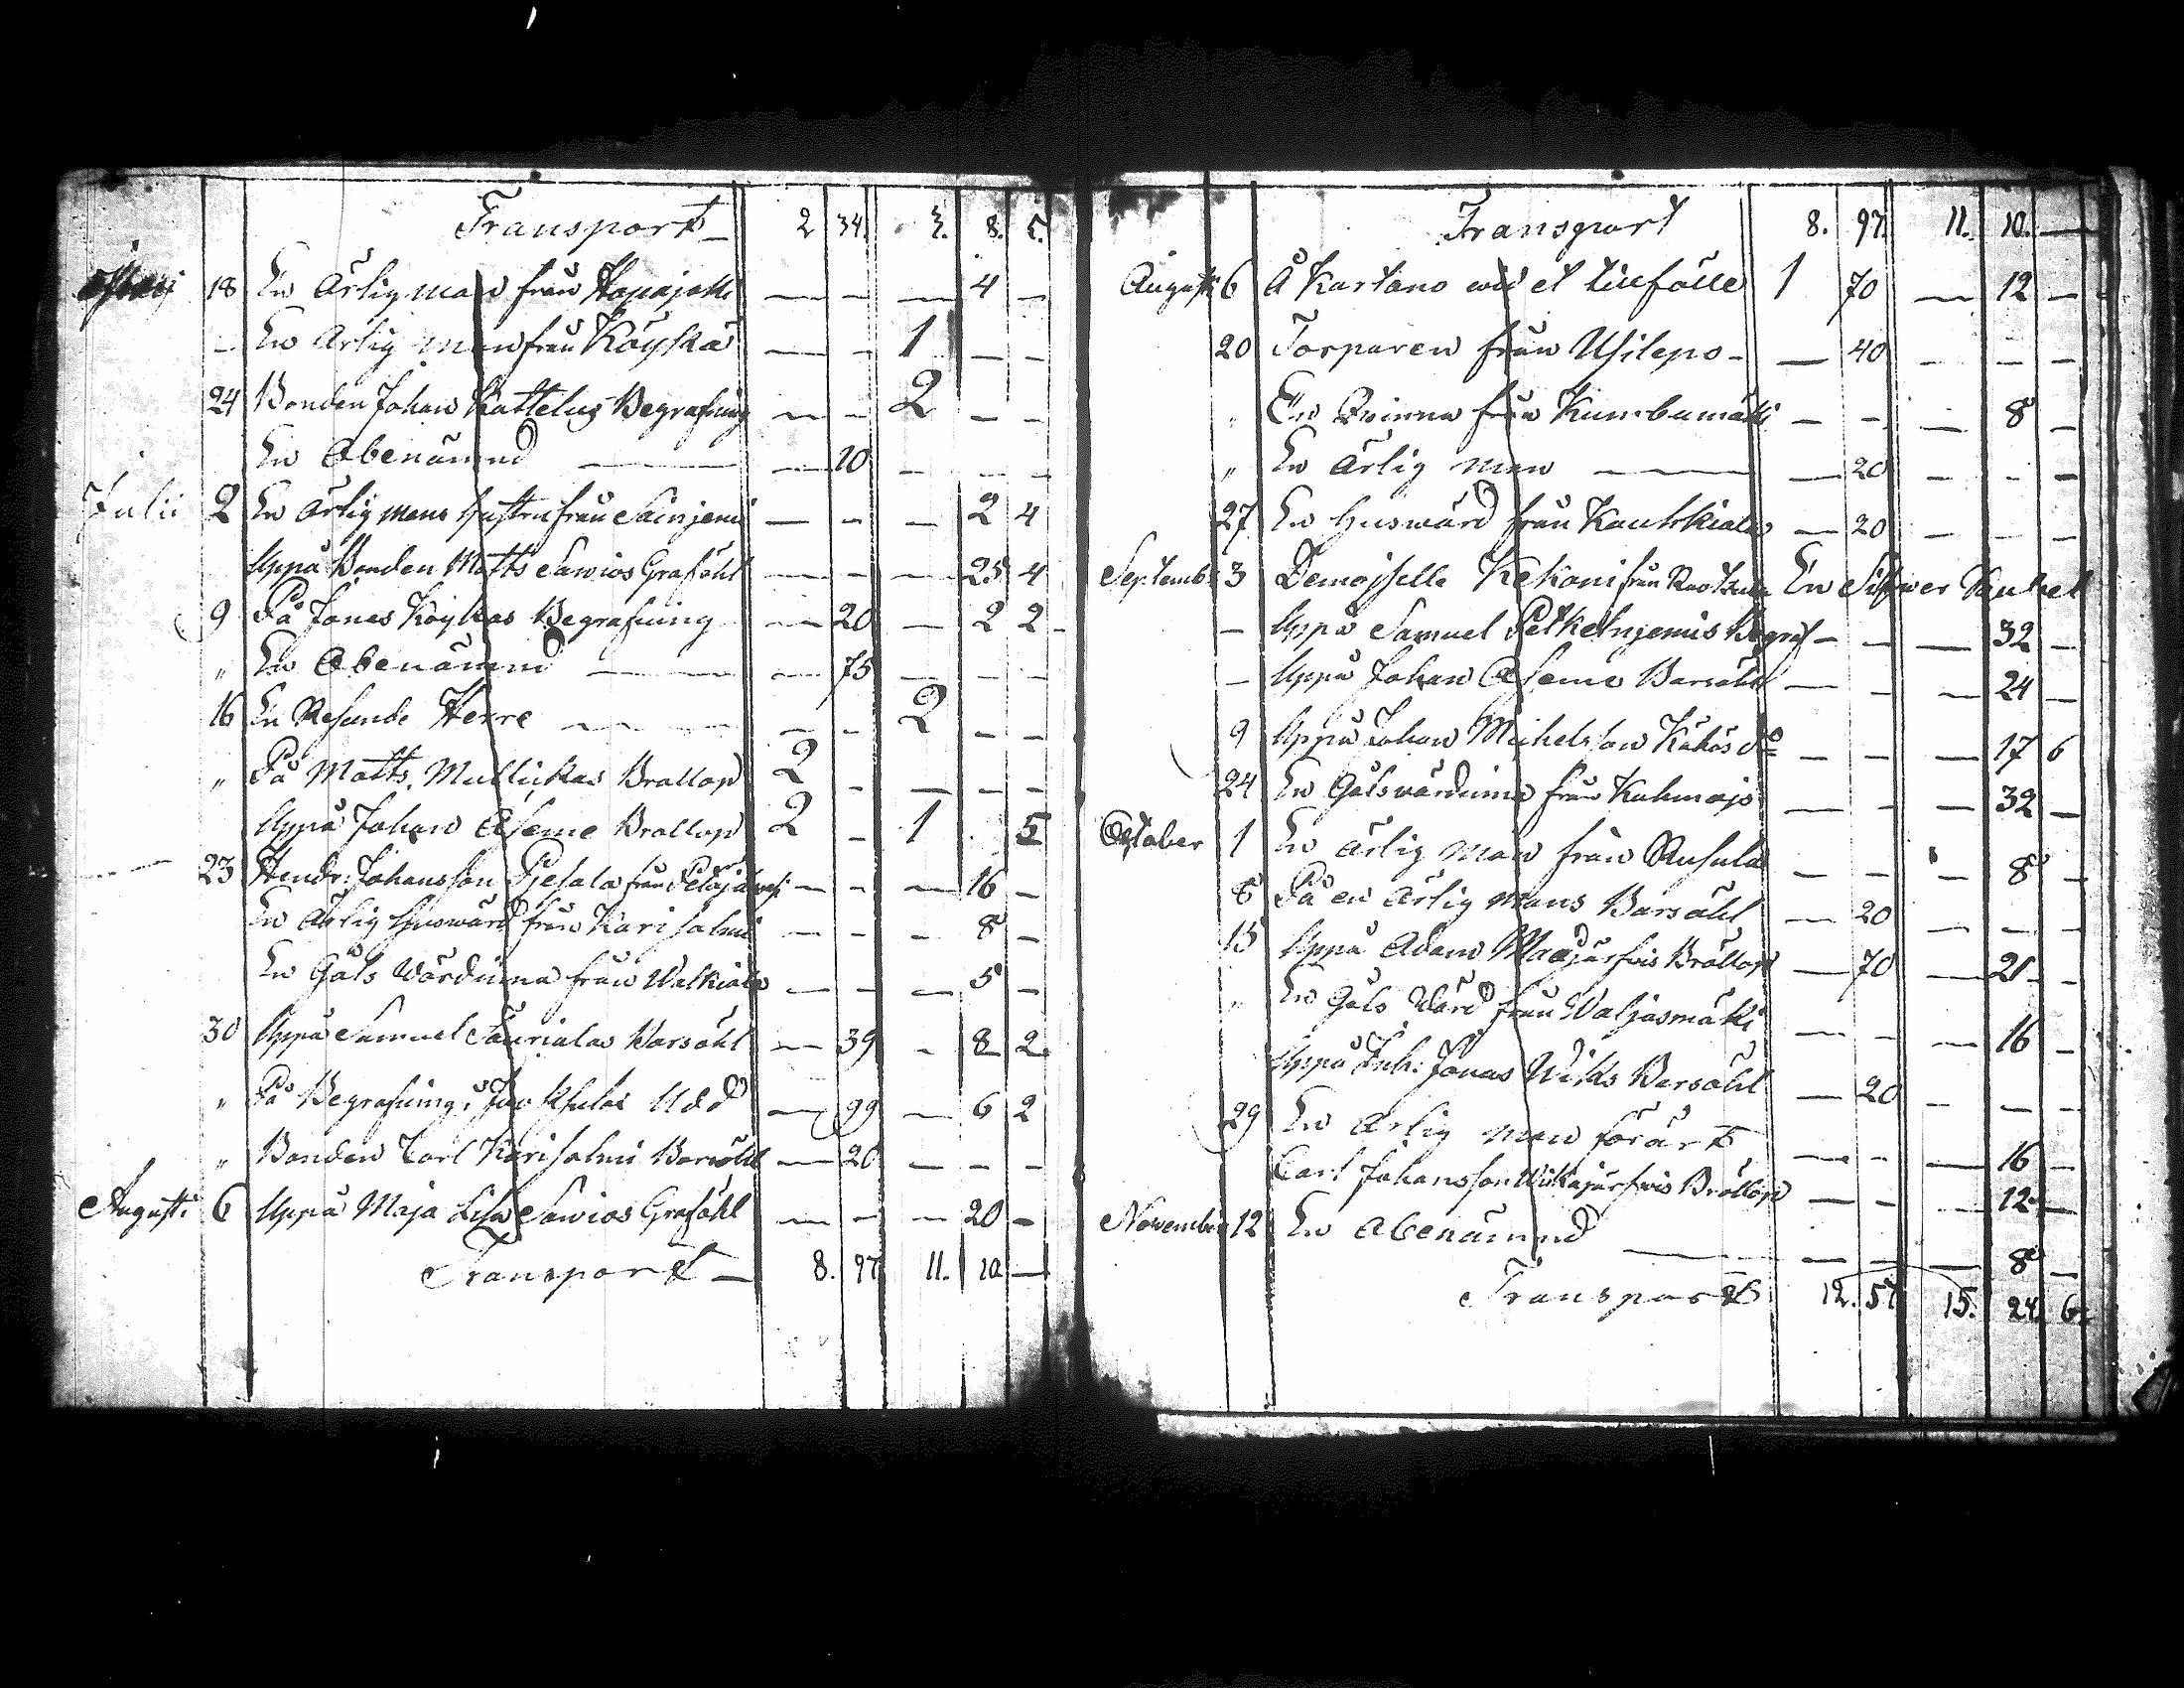 Transport — 2 34 3. 8. 5.
18 En Ärlig man från Hapajoki — — — 4 —
— En Ärlig man från Köyskä — — 1 — —
24 Bonden Johan Kattelus Begrafning — — 2 — —
En Obenämnd — — 10 — — —
Julii 2 En Ärlig mans hustru från — — — 2 4
Uppå Bonden Matts Sawios Graföhl — — — 25 4
9 På Jonas Köykas Begrafning — 20 — 2 2
" En Obenämnd — — 75 — — —
16 En Resande Herre — — — 2 — —
" På Matts Mullickas Bröllop 2 — — — —
Uppå Johan Aseme Bröllop 2 — 1 . 5
23 Hendr: Johansson Pjesala från — — — 16 —
En Ärlig husward från Karisalmi — — — 8 —
En Gåls Värdinna från Walkiala — — — 5 —
30 Uppå Samuel Barsöhl — 39 — 8 2
" På Begrafning i Udd — 99 — 6 2
" Bonden Carl Karisalmi Barsöhl — 20 — — —
Augusti 6 Uppå Maja Lisa Sawios Graföhl — — — 20 —
Transport — 8. 97 11. 10 —
Transport 8. 97. 11. 10. —
Augusti 6 Å Kartano wid et tillfälle 1 70 — 12 —
20 Torparen från — — 40 — — —
" En Qvinna från Kumbumäki — — — 8 —
" En Ärlig man — — 20 — — —
27 En Husward från — 20 — — —
Septemb: 3 Demoiselle Kekoni från En Silfwer
— Uppå Samuel Begraf — — — 32 —
— Uppå Johan Aseme Barsöhl — — — 24 —
9 Uppå Johan Michelsson Kakos do — — — 17 6
24 En Gålsvärdinna från — — — 32 —
October 1 En Ärlig man från Rusula — — — 8 —
8 På en Ärlig mans Barsöhl — 20 — — —
15 Uppå Adam Bröllop — 70 — 21 —
" En Gåls Värd från Waljasmäki — — — 16 —
Uppå Inh: Jonas Wiks Barsöhl — 20 — — —
29 En Ärlig man förärt — — — 16 —
Carl Johansson Bröllop — — — 12 —
November 12 En Obenämnd — — — — 8 —
Transport 12. 57 15. 24 6